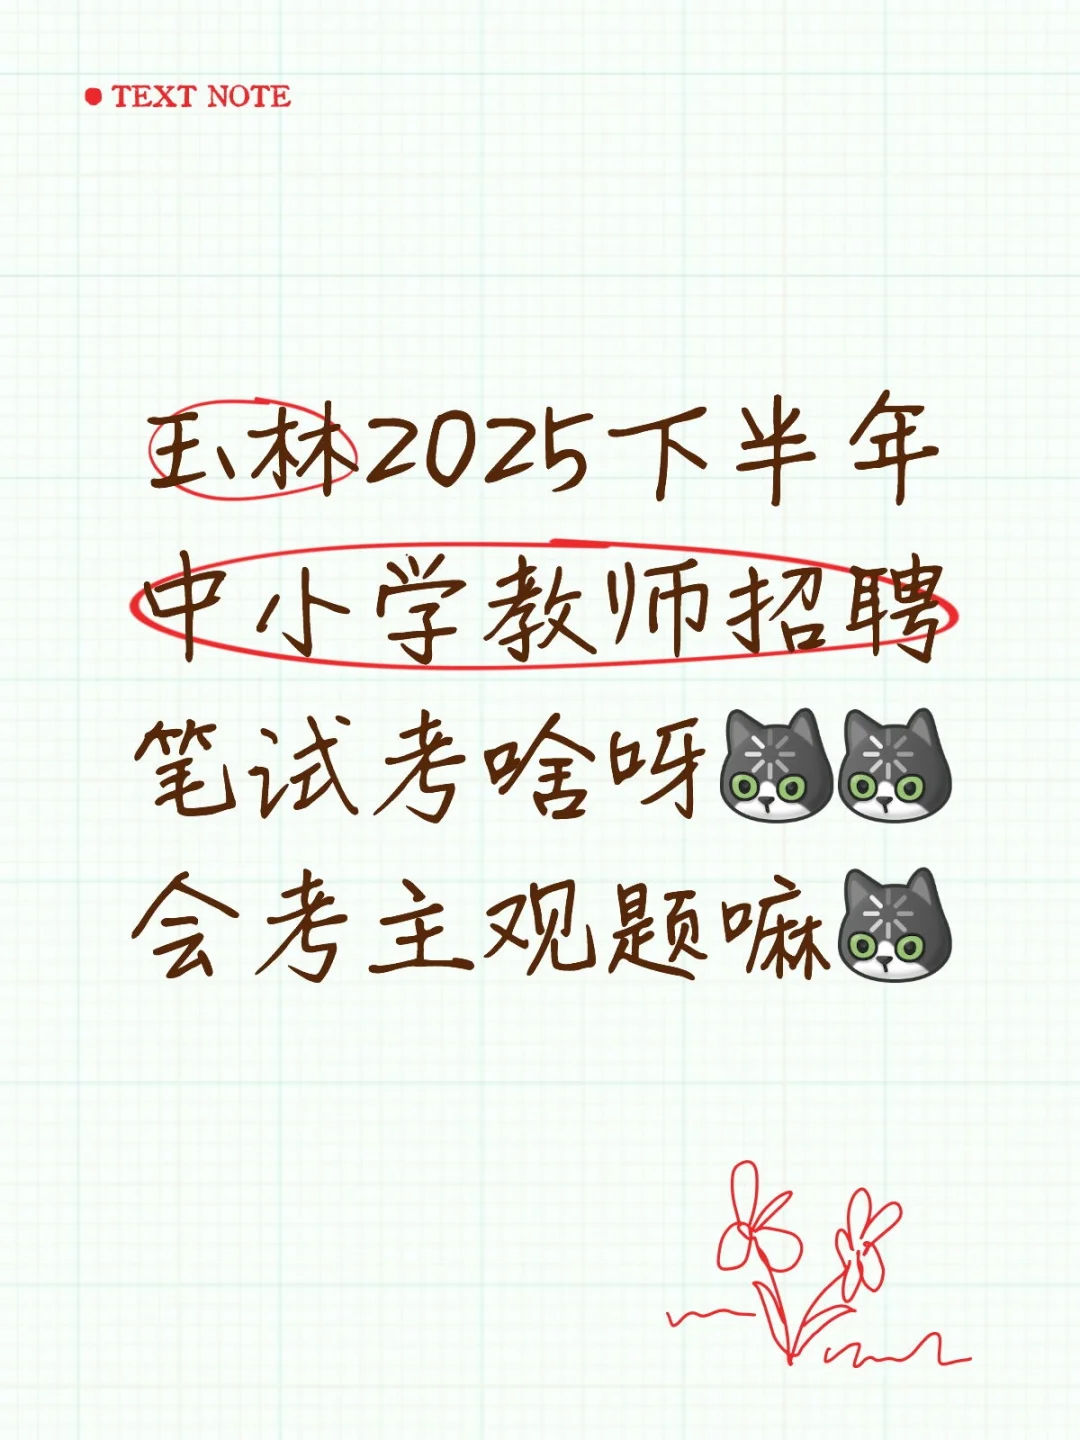 TEXT NOTE
玉林2025下半年
中小学教师招聘
笔试考啥呀
会考主观题嘛